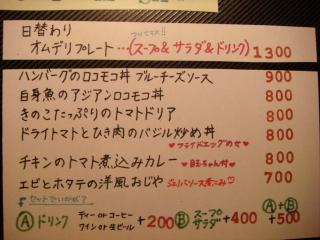 日替わり
オムデリプレート…(スープ&サラダ&ドリンク) 1300
ハンバーグのロコモコ丼 ブルーチーズソース 900
白身魚のアジアンロコモコ丼 800
きのこたっぷりのトマトドリア 800
ドライトマトとひき肉のバジル炒め丼 800
♥フライドエッグのせ♥
チキンのトマト煮込みカレー ♥目玉ちゃん付♥ 800
エビとホタテの洋風おじや 700
セットでいかが?
Ⓐ ドリンク ティー or コーヒー ワイン or 生ビール +200 Ⓑ スープ サラダ +400 Ⓐ+Ⓑ +500